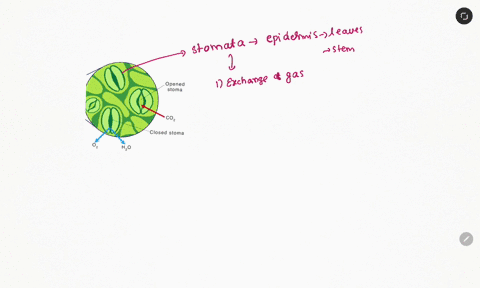 stomata → epidermis → leaves
→ stem
1) Exchange of gas
Opened
stoma
CO₂
Closed stoma
O₂
H₂O